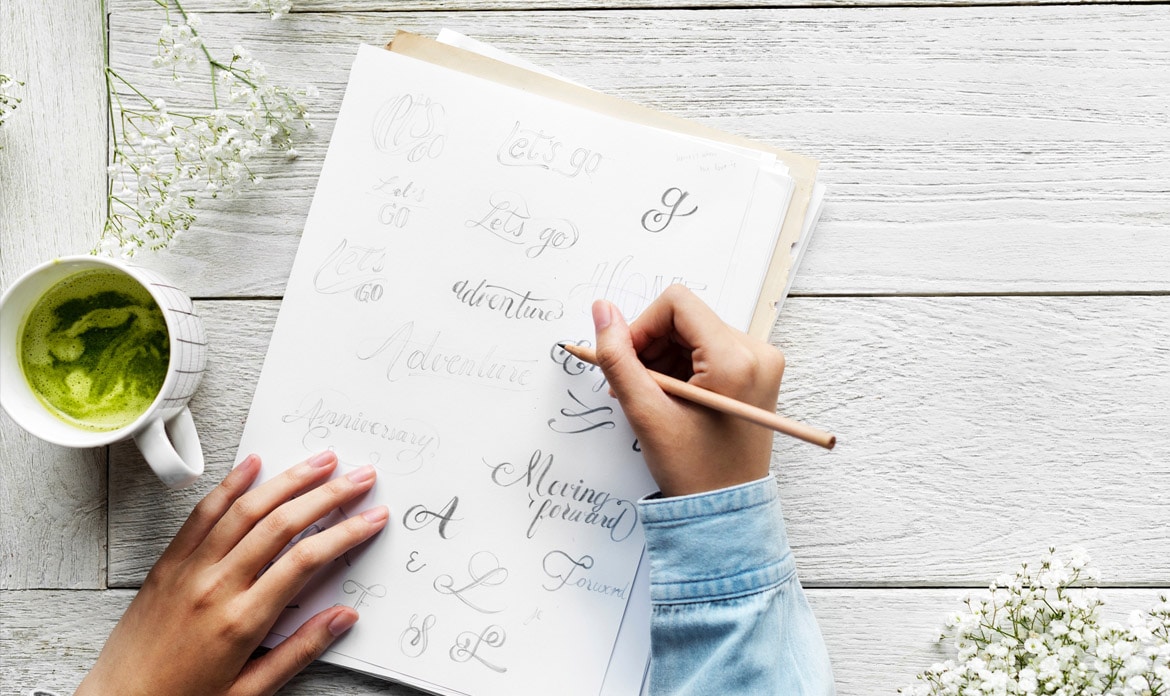 Let's go
Let's
GO
g
Lets go
Let's
GO
HOME
adventure
Adventure
Anniversary
Moving
forward
A
E
L
Forward
F
S
L